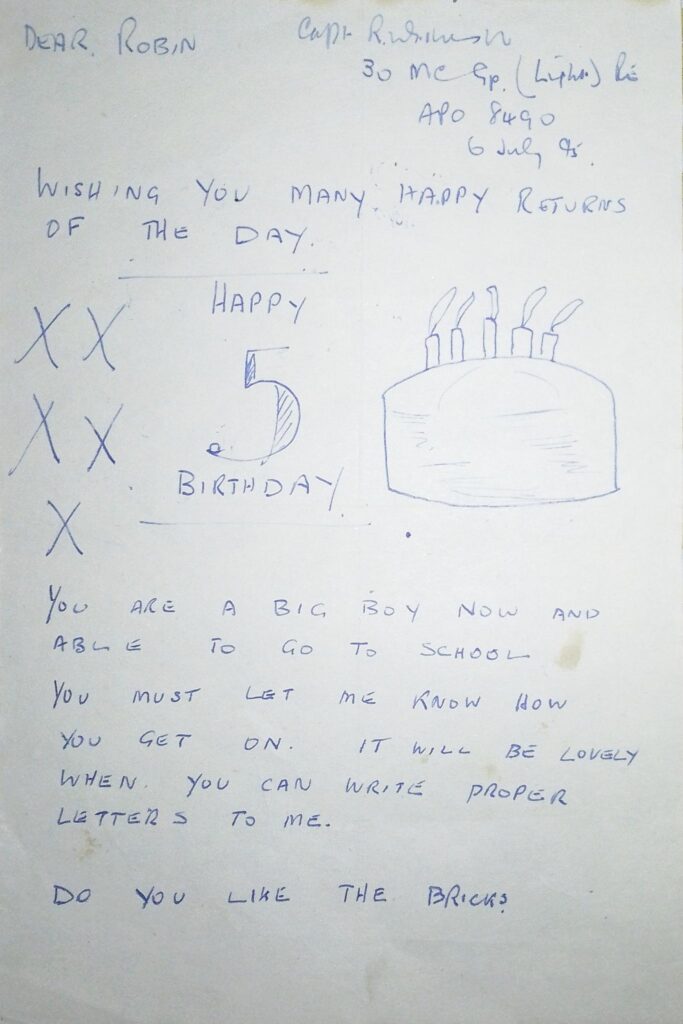 DEAR. ROBIN
Capt R.
30 MC Gp. (Light) RE
APO 8490
6 July
WISHING YOU MANY HAPPY RETURNS
OF THE DAY.
HAPPY
5
BIRTHDAY
X X
X X
X
YOU ARE A BIG BOY NOW AND
ABLE TO GO TO SCHOOL
YOU MUST LET ME KNOW HOW
YOU GET ON. IT WILL BE LOVELY
WHEN. YOU CAN WRITE PROPER
LETTERS TO ME.
DO YOU LIKE THE BRICKS